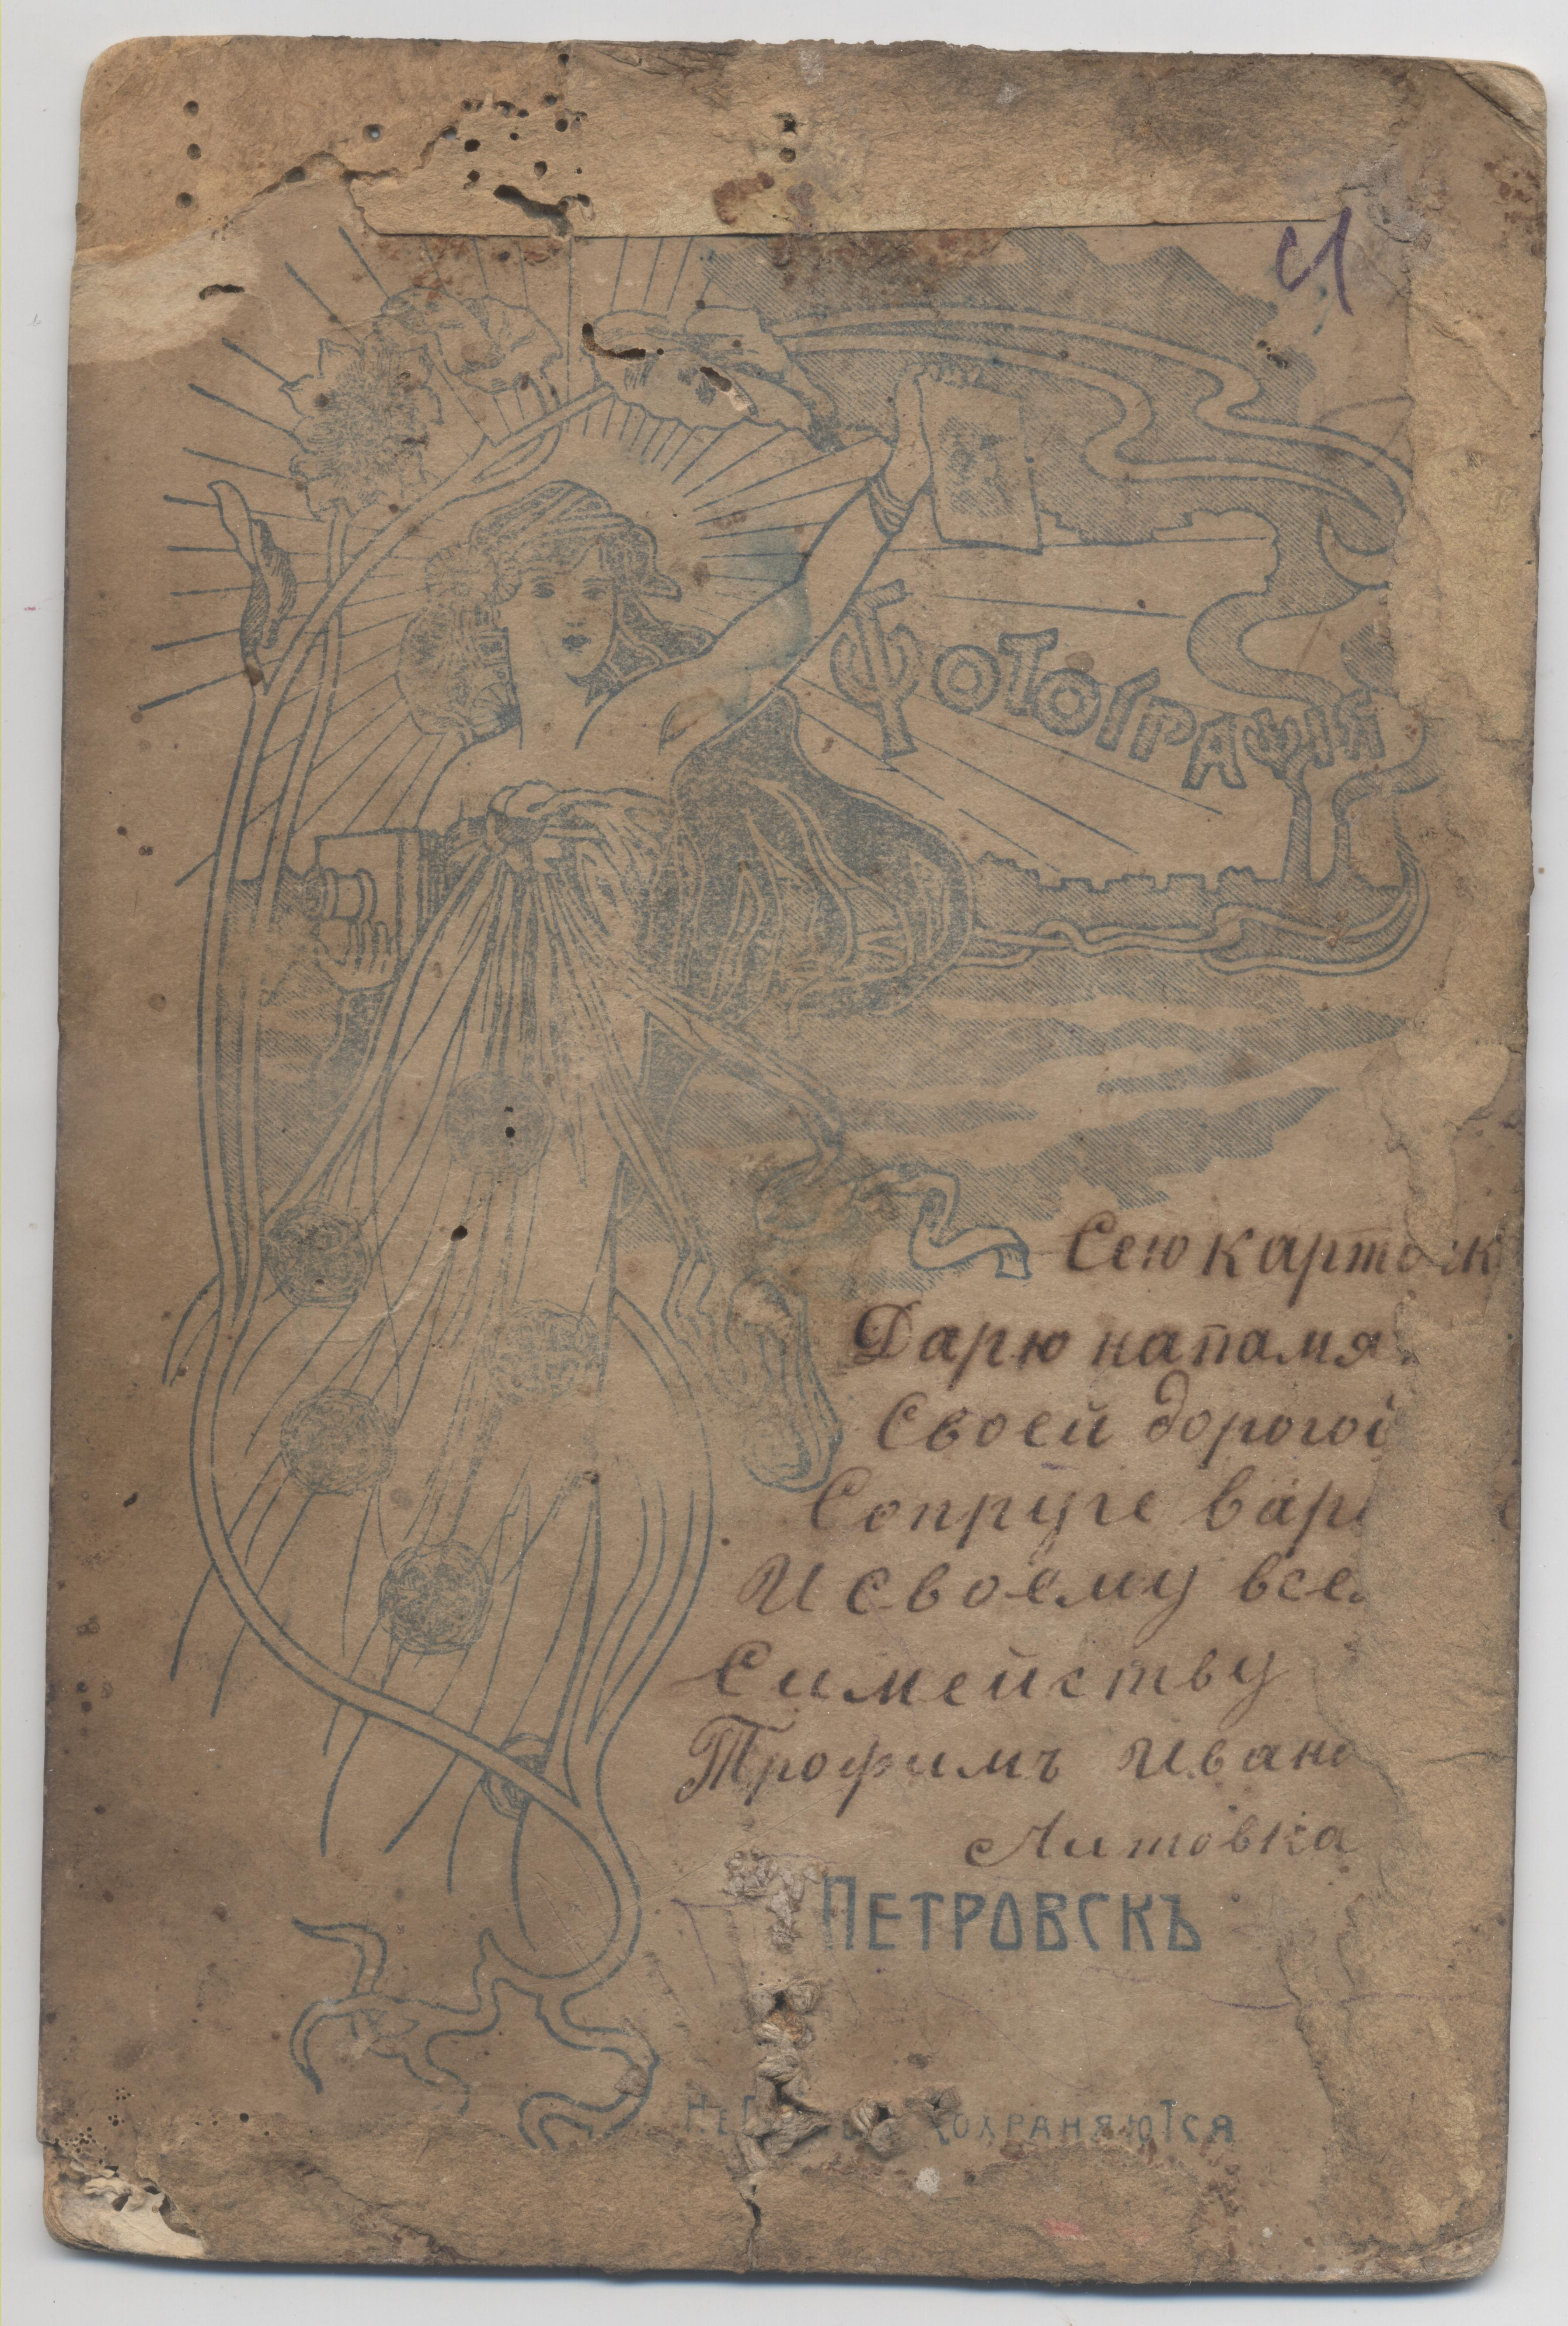 Фотография
Сею карточк
Дарю на памя
Своей дорогой
Сопруге вар
И своему все
Симейству
Трофимъ Ивано
Литовка
Петровскъ
охраняются